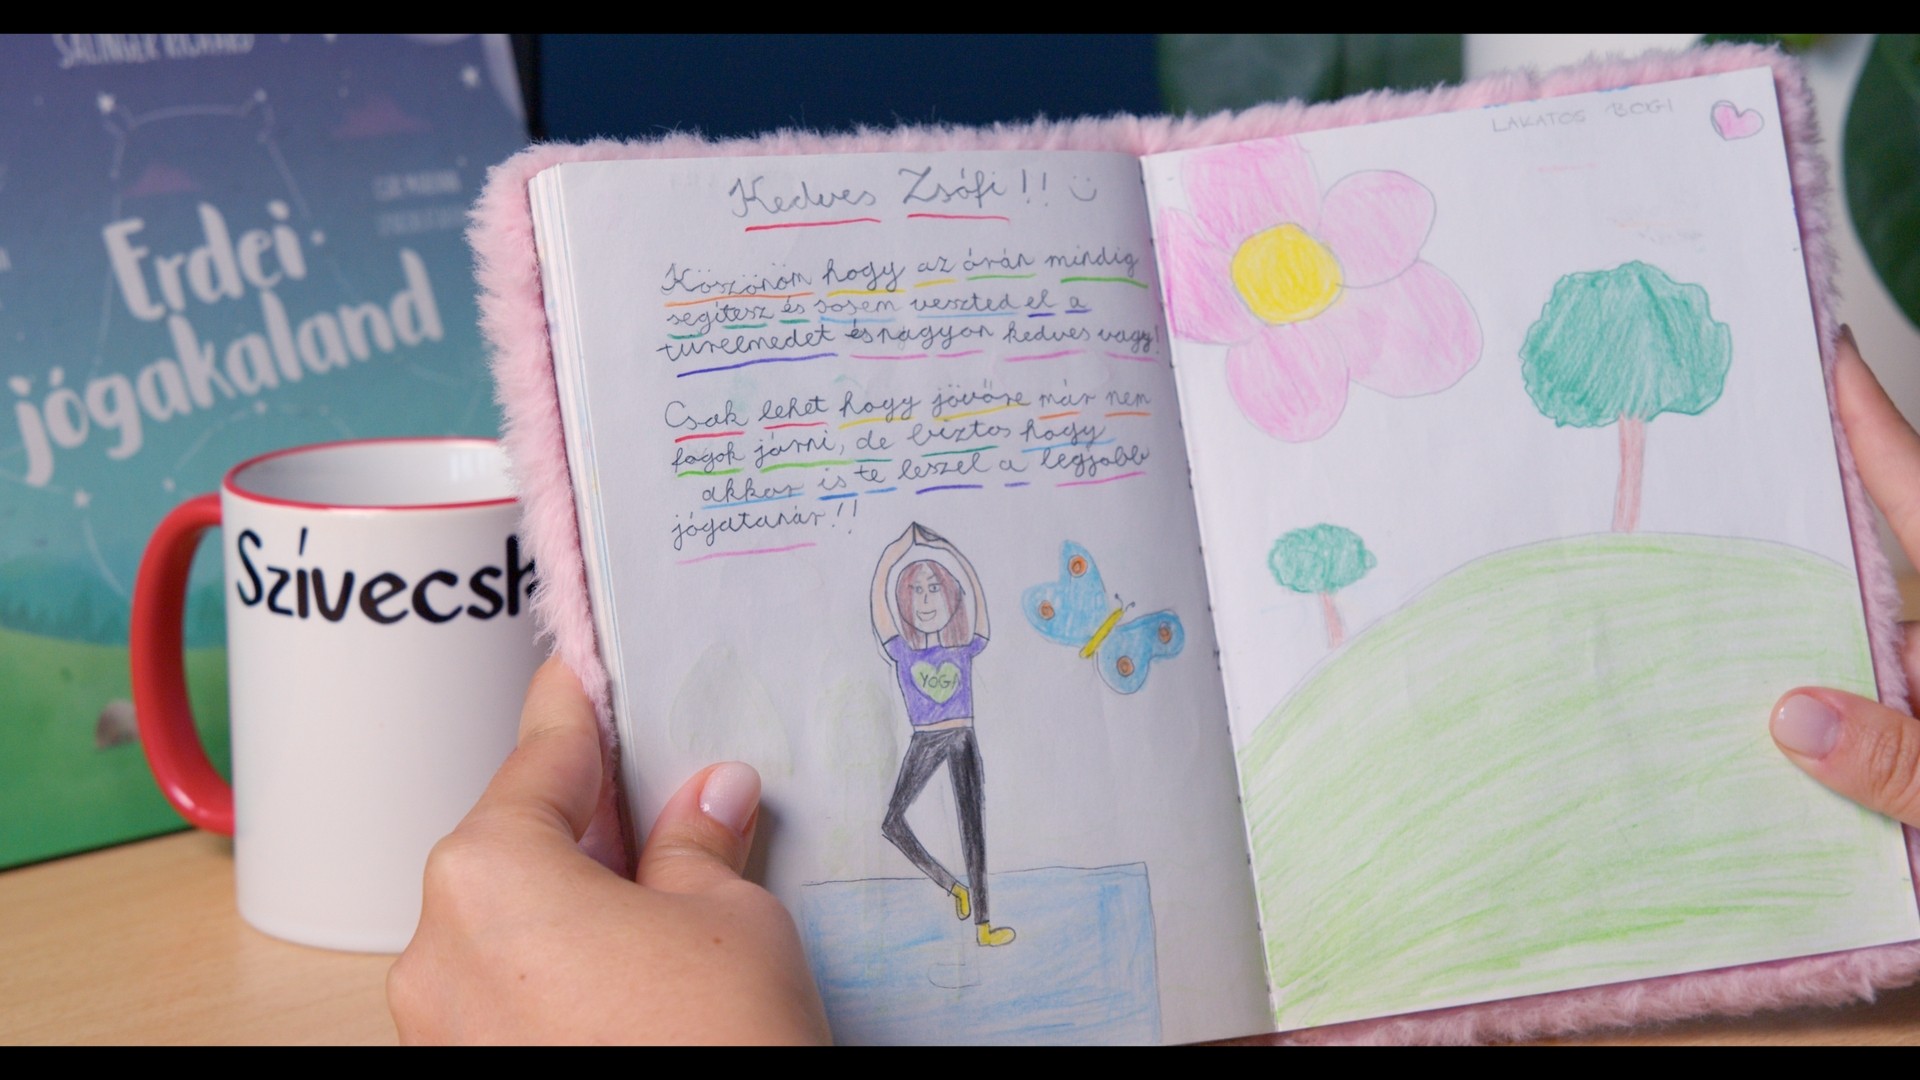 SALINGER RICHÁRD
Erdei
jógakaland
Szívecsk
Kedves Zsófi!!
Köszönöm hogy az órán mindig
segítesz és sosem veszted el a
türelmedet és nagyon kedves vagy!
Csak lehet hogy jövőre már nem
fogok járni, de biztos hogy
akkor is te leszel a legjobb
jógatanár!!
YOGA
LAKATOS BOGI